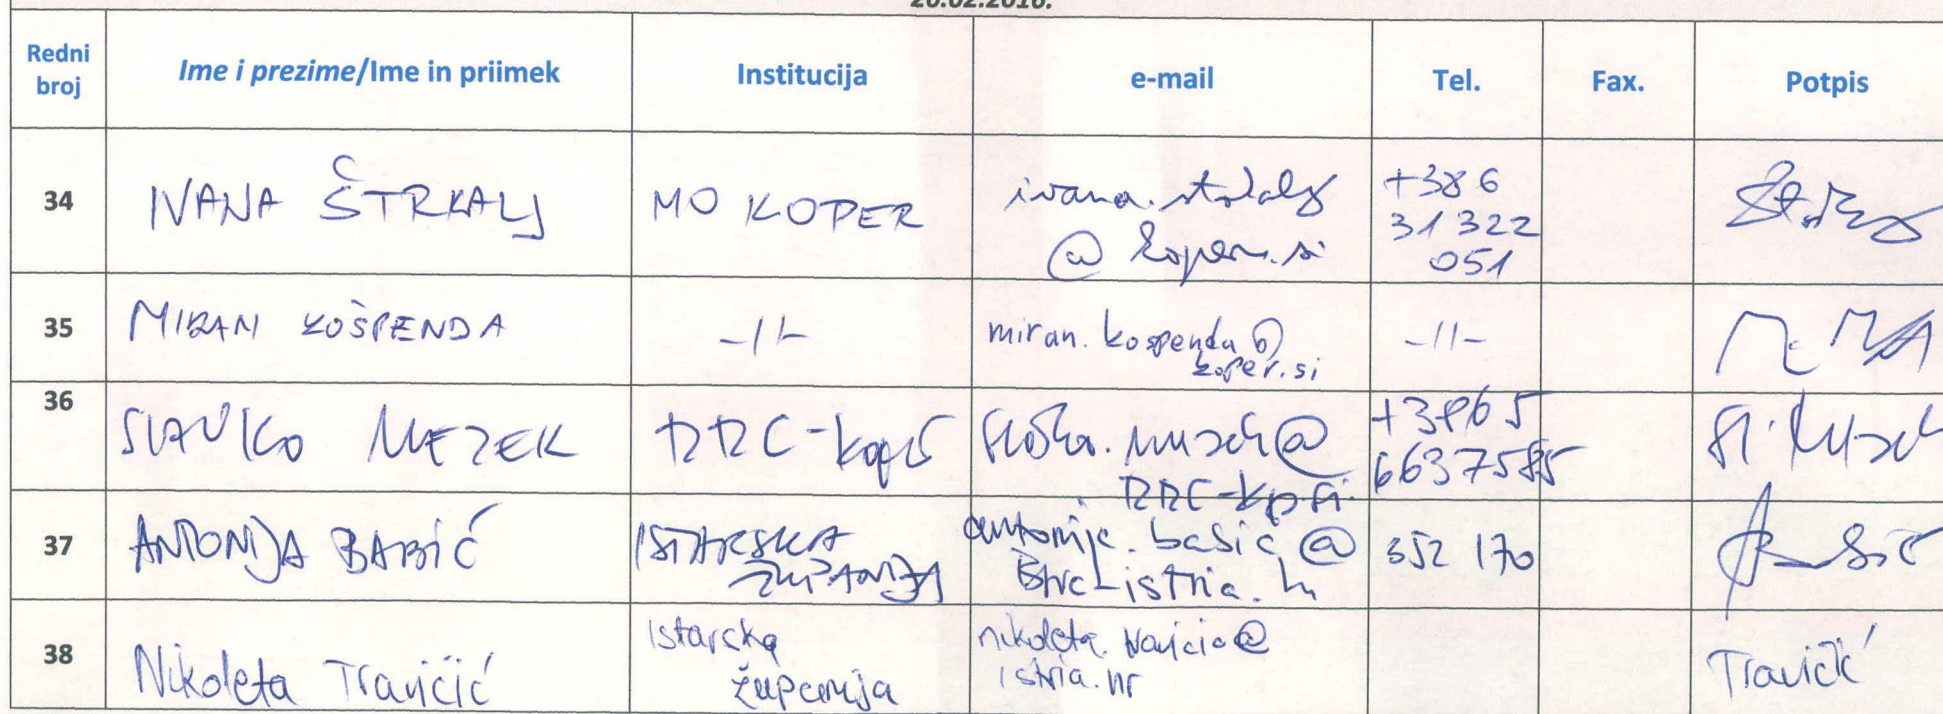 26.02.2016.
Redni broj Ime i prezime/Ime in priimek Institucija e-mail Tel. Fax. Potpis
34 IVANA ŠTRKALJ MO KOPER ivana.strkalj @ koper.si +386 31 322 051
35 MIRAN KOŠPENDA -//- miran.kospenda@ koper.si -//-
36 SLAVKO MEZEK RRC-koper slavko.mezek@ RRC-kp.si +3865 6637585
37 ANTONIJA BABIĆ ISTARSKA ŽUPANIJA antonija.babic@ 352 170
38 Nikoleta Travičić Istarska županija nikoleta.travicic@ istria.hr Travičić